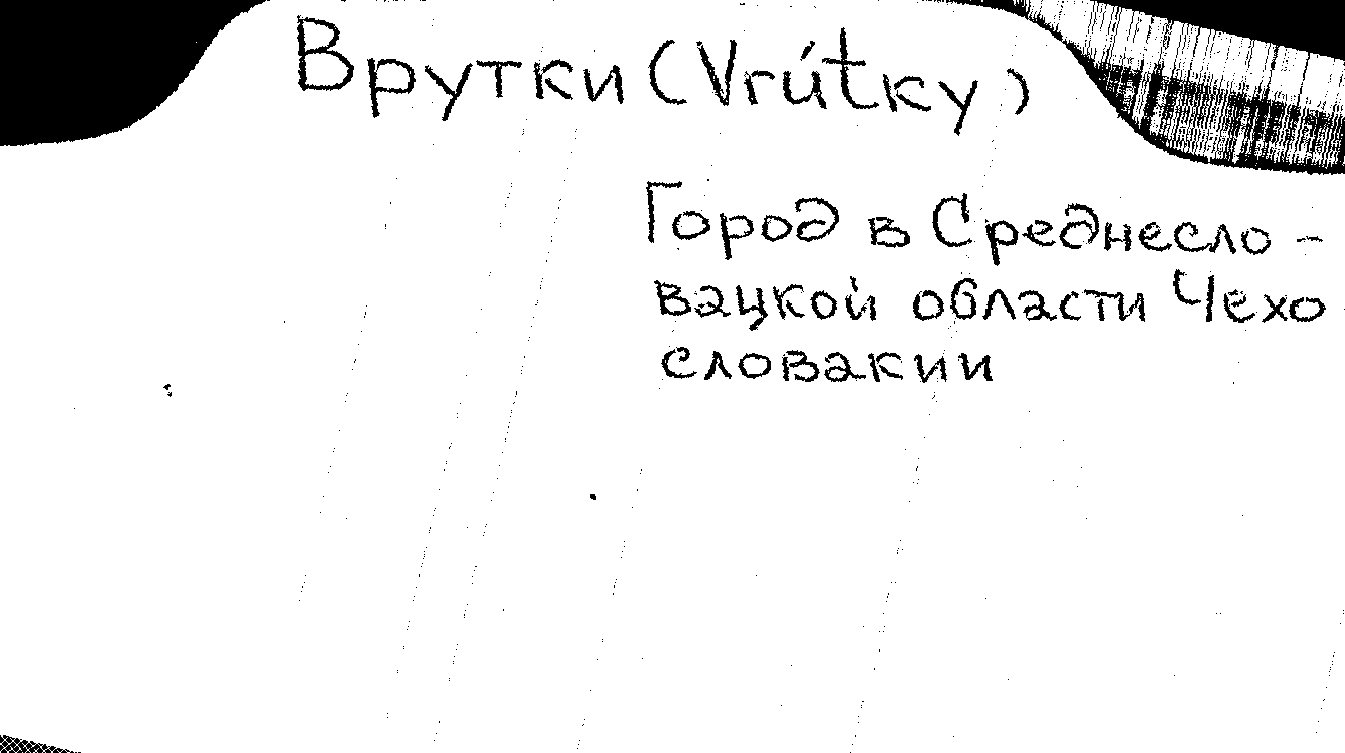 Врутки (Vrútky)
Город в Среднесло-
вацкой области Чехо-
словакии